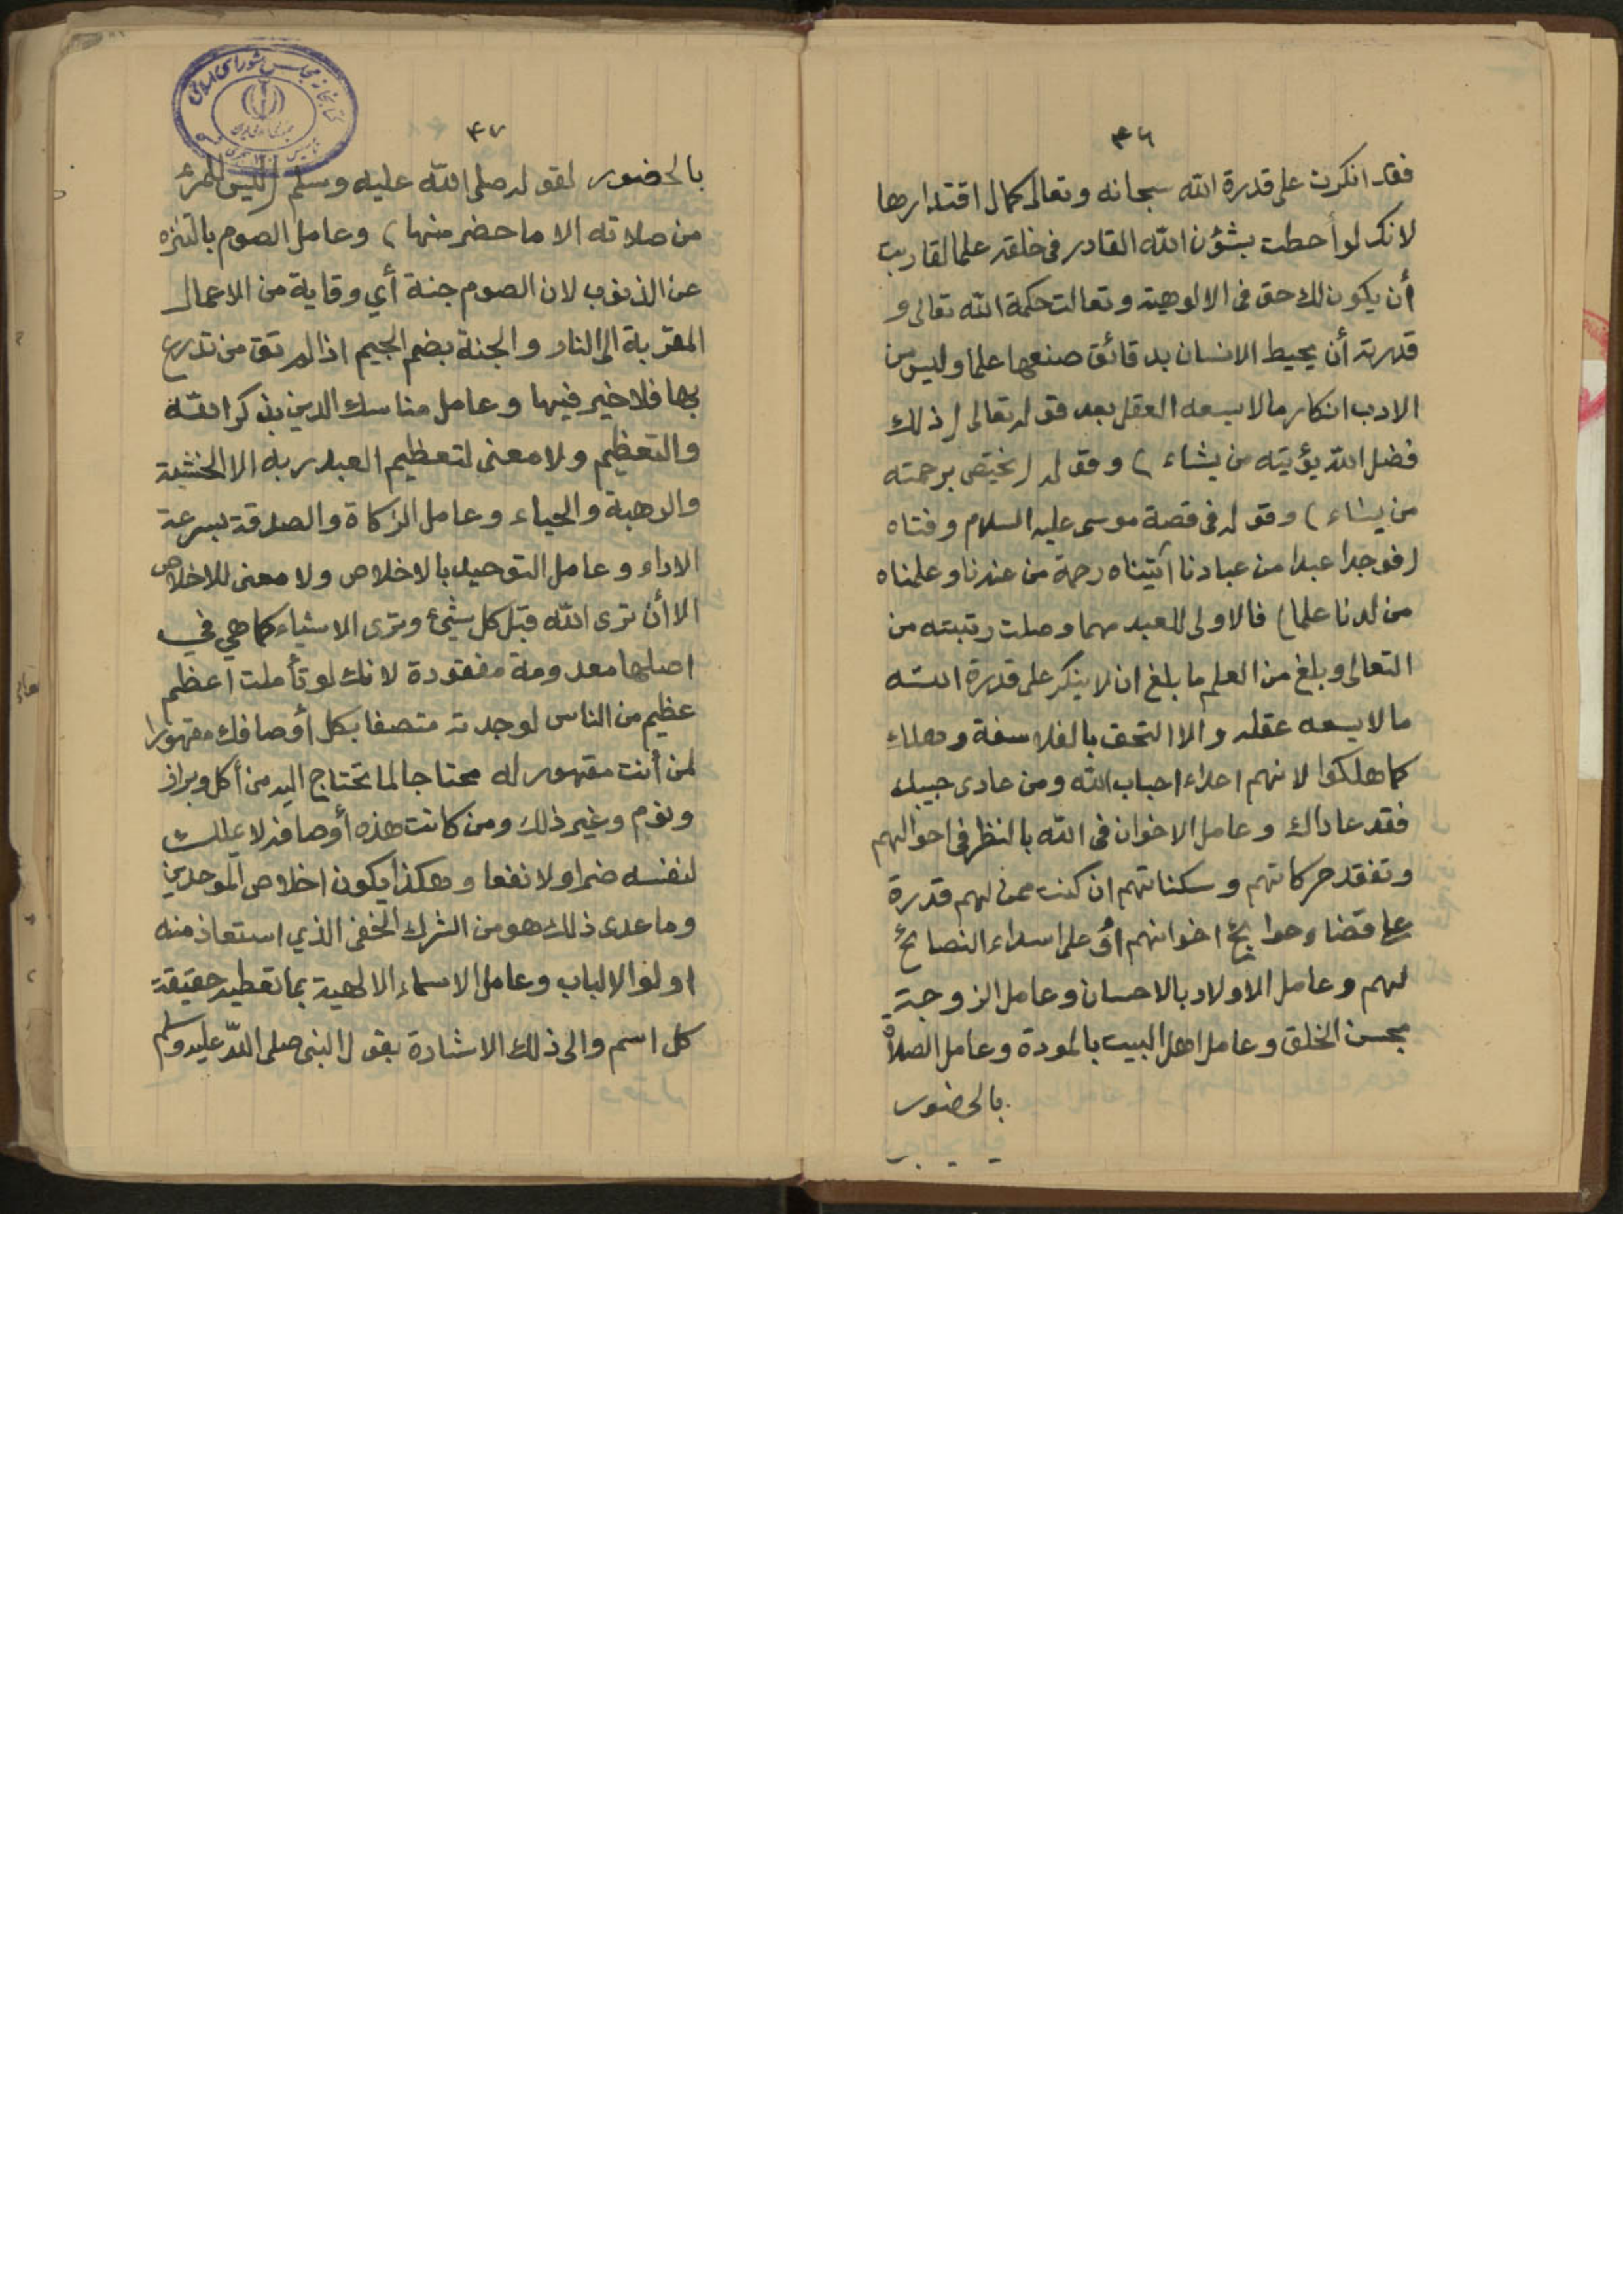 ٤٦
فقد انكرت على قدرة الله سبحانه وتعالى كمال اقتدارها
لانك لو أحطت بشؤن الله القادر فى خلقه علما لقاربت
أن يكون لك حق فى الالوهية وتعالت حكمة الله تعالى و
قدرته أن يحيط الانسان بدقائق صنعها علما وليس من
الادب انكار ما لا يسعه العقل بعد قوله تعالى (ذلك
فضل الله يؤتيه من يشاء) وقوله (يختص برحمته
من يشاء) وقوله فى قصة موسى عليه السلام وفتاه
(فوجدا عبدا من عبادنا آتيناه رحمة من عندنا وعلمناه
من لدنا علما) فالاولى للعبد مهما وصلت رتبته من
التعالى وبلغ من العلم ما بلغ ان لا ينكر على قدرة الله
ما لا يسعه عقله والا التحق بالفلاسفة وهلك
كما هلكوا لانهم اعداء احباب الله ومن عادى حبيبك
فقد عاداك وعامل الاخوان فى الله بالنظر فى احوالهم
وتفقد حركاتهم وسكناتهم ان كنت ممن لهم قدرة
على قضاء حوائج اخوانهم أو على اسداء النصائح
لهم وعامل الاولاد بالاحسان وعامل الزوجة
بحسن الخلق وعامل اهل البيت بالمودة وعامل الصلاة
بالحضور
٤٧
بالحضور لقوله صلى الله عليه وسلم (ليس للمرء
من صلاته الا ما حضر منها) وعامل الصوم بالتنزه
عن الذنوب لان الصوم جنة أي وقاية من الاعمال
المقربة الى النار والجنة بضم الجيم اذا لم تق من تدرع
بها فلا خير فيها وعامل مناسك الدين بذكر الله
والتعظيم ولا معنى لتعظيم العبد ربه الا الخشية
والرهبة والحياء وعامل الزكاة والصدقة بسرعة
الاداء وعامل التوحيد بالاخلاص ولا معنى للاخلاص
الا أن ترى الله قبل كل شيئ وترى الاشياء كما هي في
اصلها معدومة مفقودة لانك لو تأملت اعظم
عظيم من الناس لوجدته متصفا بكل أوصافك مقهورا
لمن أنت مقهور له محتاجا لما تحتاج اليه من أكل وبراز
ونوم وغير ذلك ومن كانت هذه أوصافه لا يملك
لنفسه ضرا ولا نفعا وهكذا يكون اخلاص الموحدين
وما عدى ذلك هو من الشرك الخفى الذي استعاذ منه
اولوا الالباب وعامل الاسماء الالهية بما تعطيه حقيقة
كل اسم والى ذلك الاشارة بقول النبى صلى الله عليه وسلم